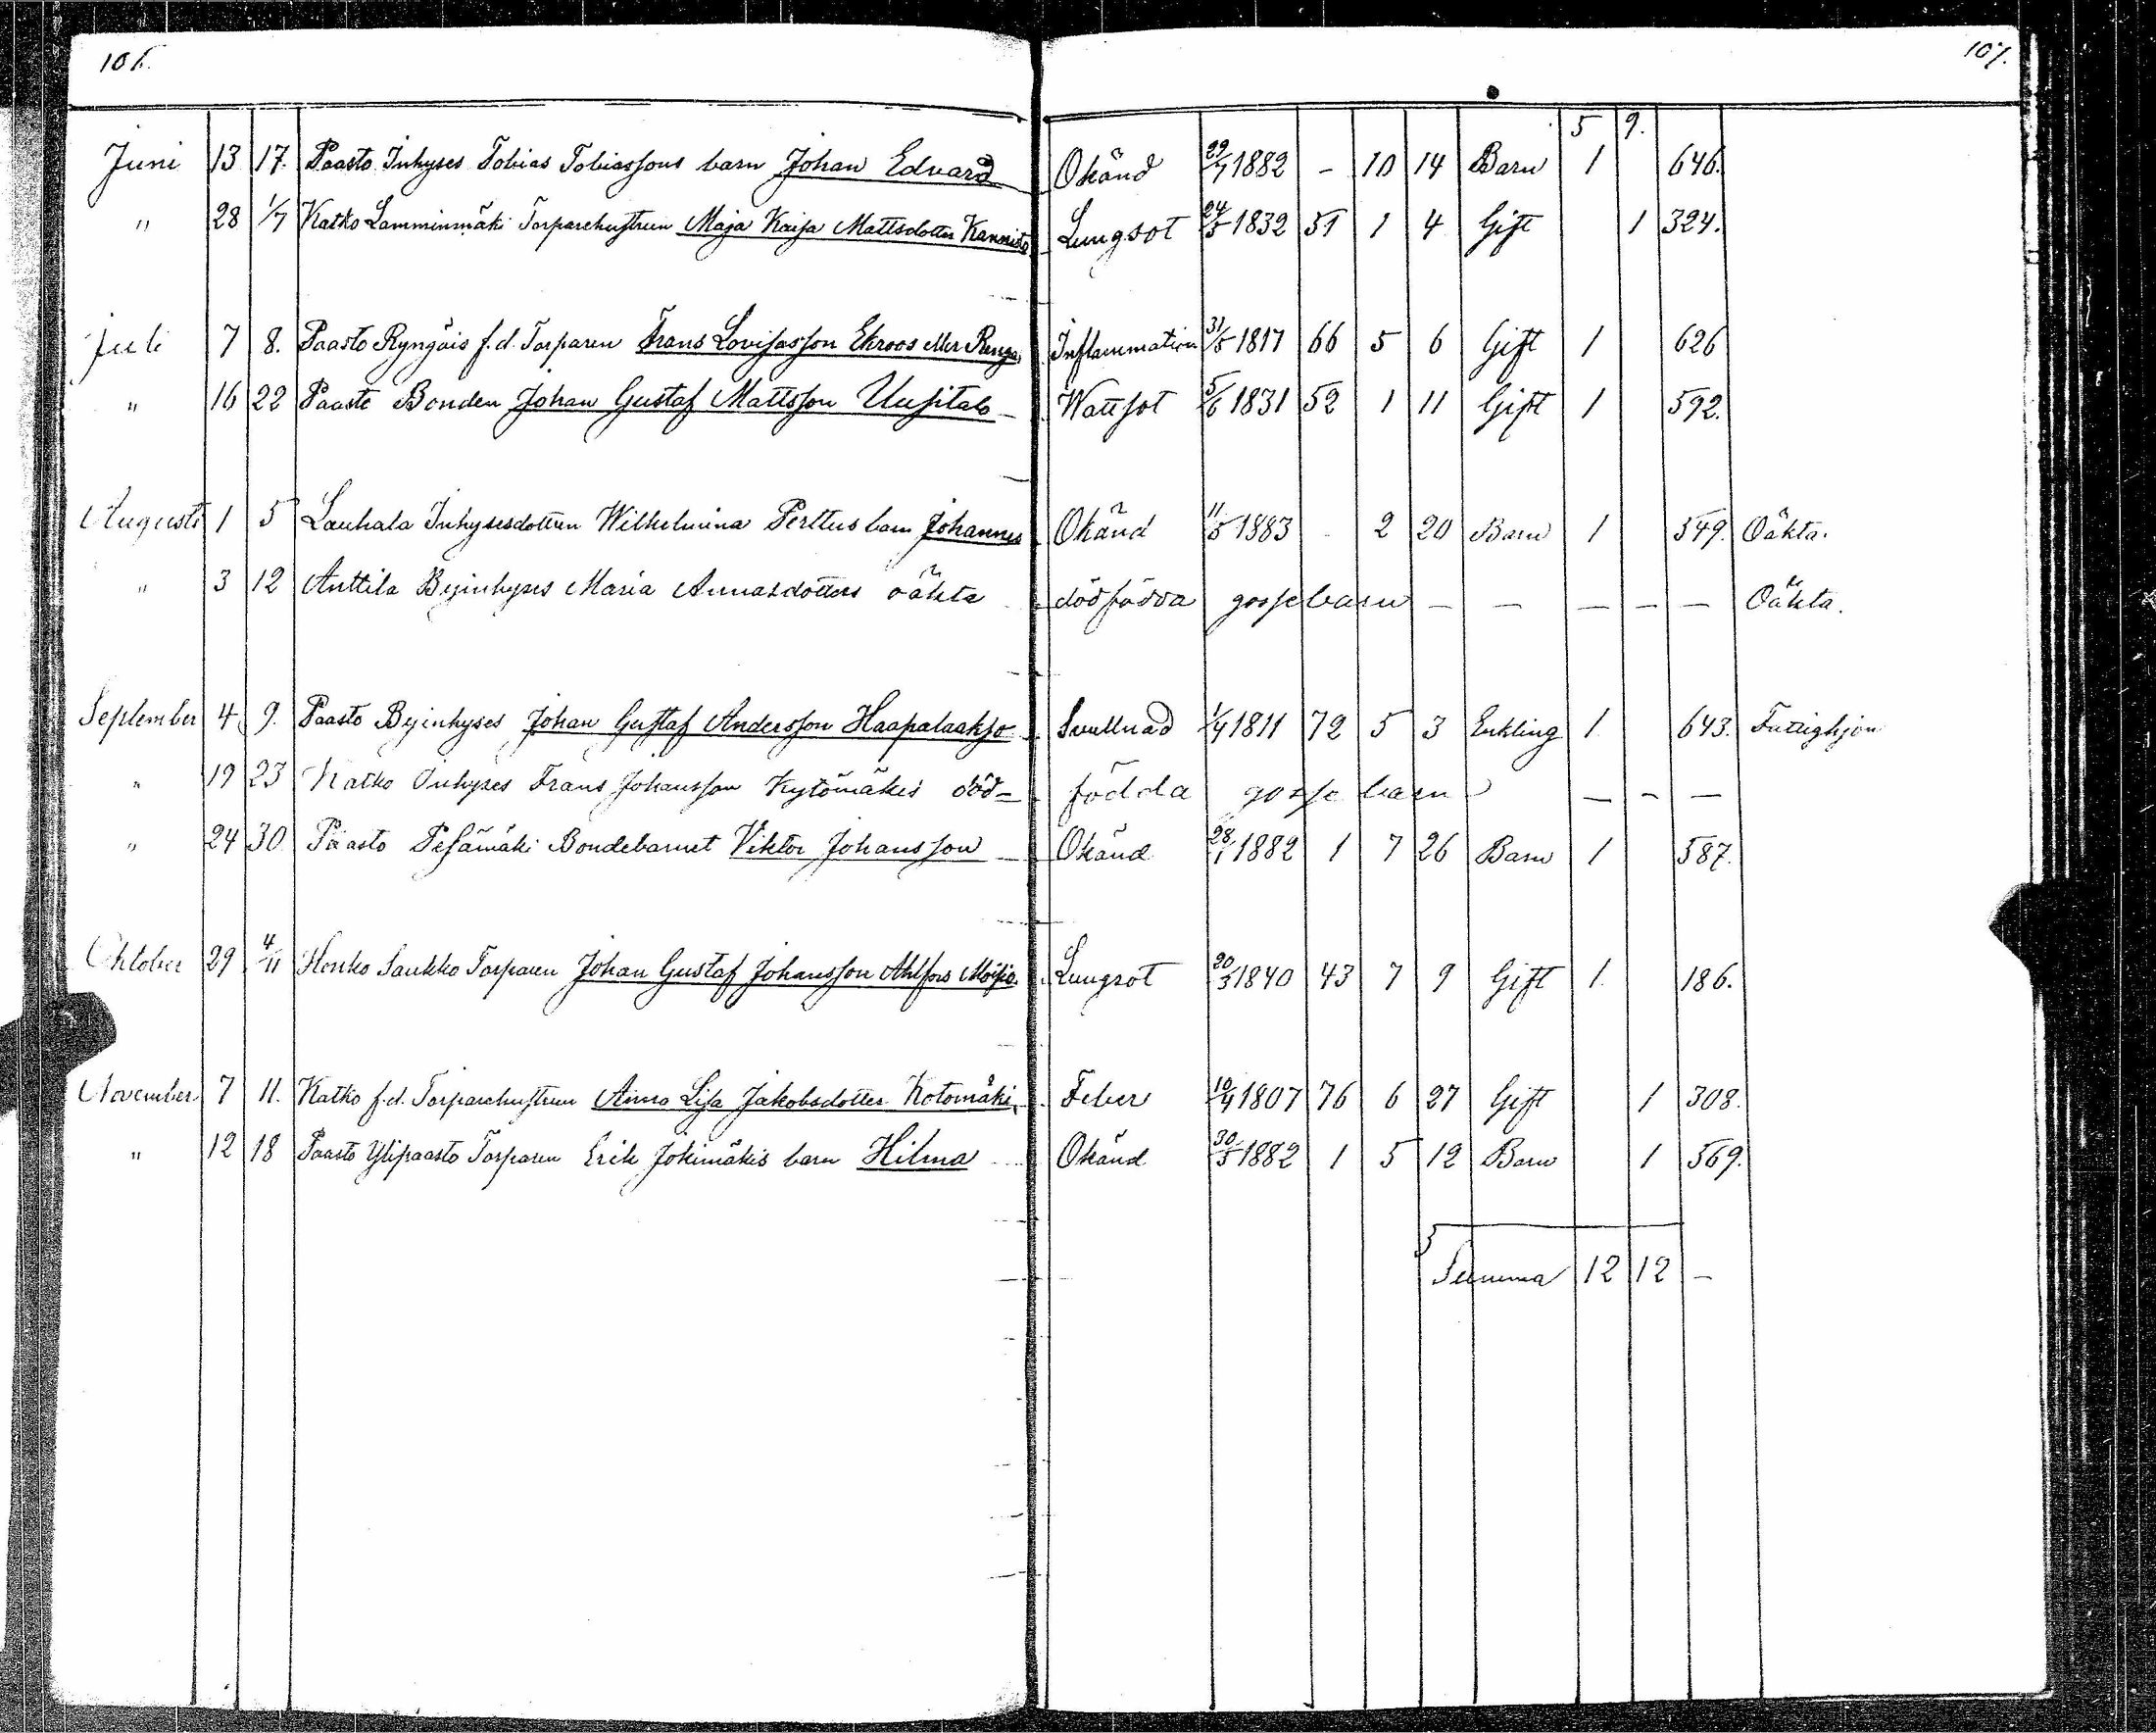 106.
107.
5 9.
Juni 13 17. Paasto Inhyses Tobias Tobiassons barn Johan Edvard Okänd 29/7 1882 - 10 14 Barn 1 646.
" 28 1/7 Katko Lamminmäki Torparehustrun Maja Kaisa Mattsdotter Kannisto Lungsot 24/5 1832 51 1 4 Gift 1 324.
Juli 7 8. Paasto Ryngäis f.d. Torparen Frans Lovisasson Ekroos eller Renga Inflammation 31/5 1817 66 5 6 Gift 1 626
" 16 22 Paasto Bonden Johan Gustaf Mattsson Uusitalo Wattsot 5/6 1831 52 1 11 Gift 1 592.
Augusti 1 5 Lauhala Inhysesdottren Wilhelmina Perttus barn Johannes Okänd 11/5 1883 2 20 Barn 1 549. Oäkta.
" 3 12 Anttila Byinhyses Maria Annasdotters oäkta dödfödda gossebarn — — — — — Oäkta.
September 4 9. Paasto Byinhyses Johan Gustaf Andersson Haapalaakso Svullnad 1/4 1811 72 5 3 Enkling 1 643. Fattighjon
" 19 23 Katko Inhyses Frans Johansson Kytömäkis död= födda gosse barn — - —
" 24 30 Paasto Pesämäki Bondebarnet Viktor Johansson Okänd 28/1 1882 1 7 26 Barn 1 587.
Oktober 29 4/11 Honko Saukko Torparen Johan Gustaf Johansson Ahlfors Moisio. Lungsot 20/3 1840 43 7 9 Gift 1. 186.
November 7 11. Katko f.d. Torparehustrun Anna Lisa Jakobsdotter Kotomäki, Feber 10/4 1807 76 6 27 Gift 1 308.
" 12 18 Paasto Ylipaasto Torparen Erik Jokimäkis barn Hilma Okänd 30/5 1882 1 5 12 Barn 1 569.
Summa 12 12 —